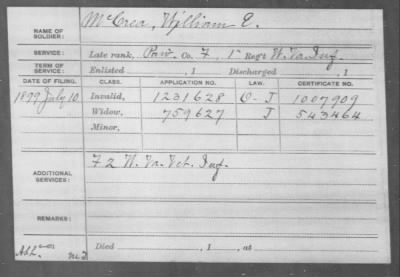 NAME OF SOLDIER: McCrea, William E.
SERVICE: Late rank, Pvt. Co. F, 1" Reg't W. Va. Inf.
TERM OF SERVICE: Enlisted , 1 Discharged , 1
DATE OF FILING. CLASS. APPLICATION NO. LAW. CERTIFICATE NO.
1899 July 10 Invalid, 1231628 J 1007909
Widow, 759627 J 543464
Minor,
ADDITIONAL SERVICES: F 2 W. Va. Vet. Inf.
REMARKS:
Died , 1 , at